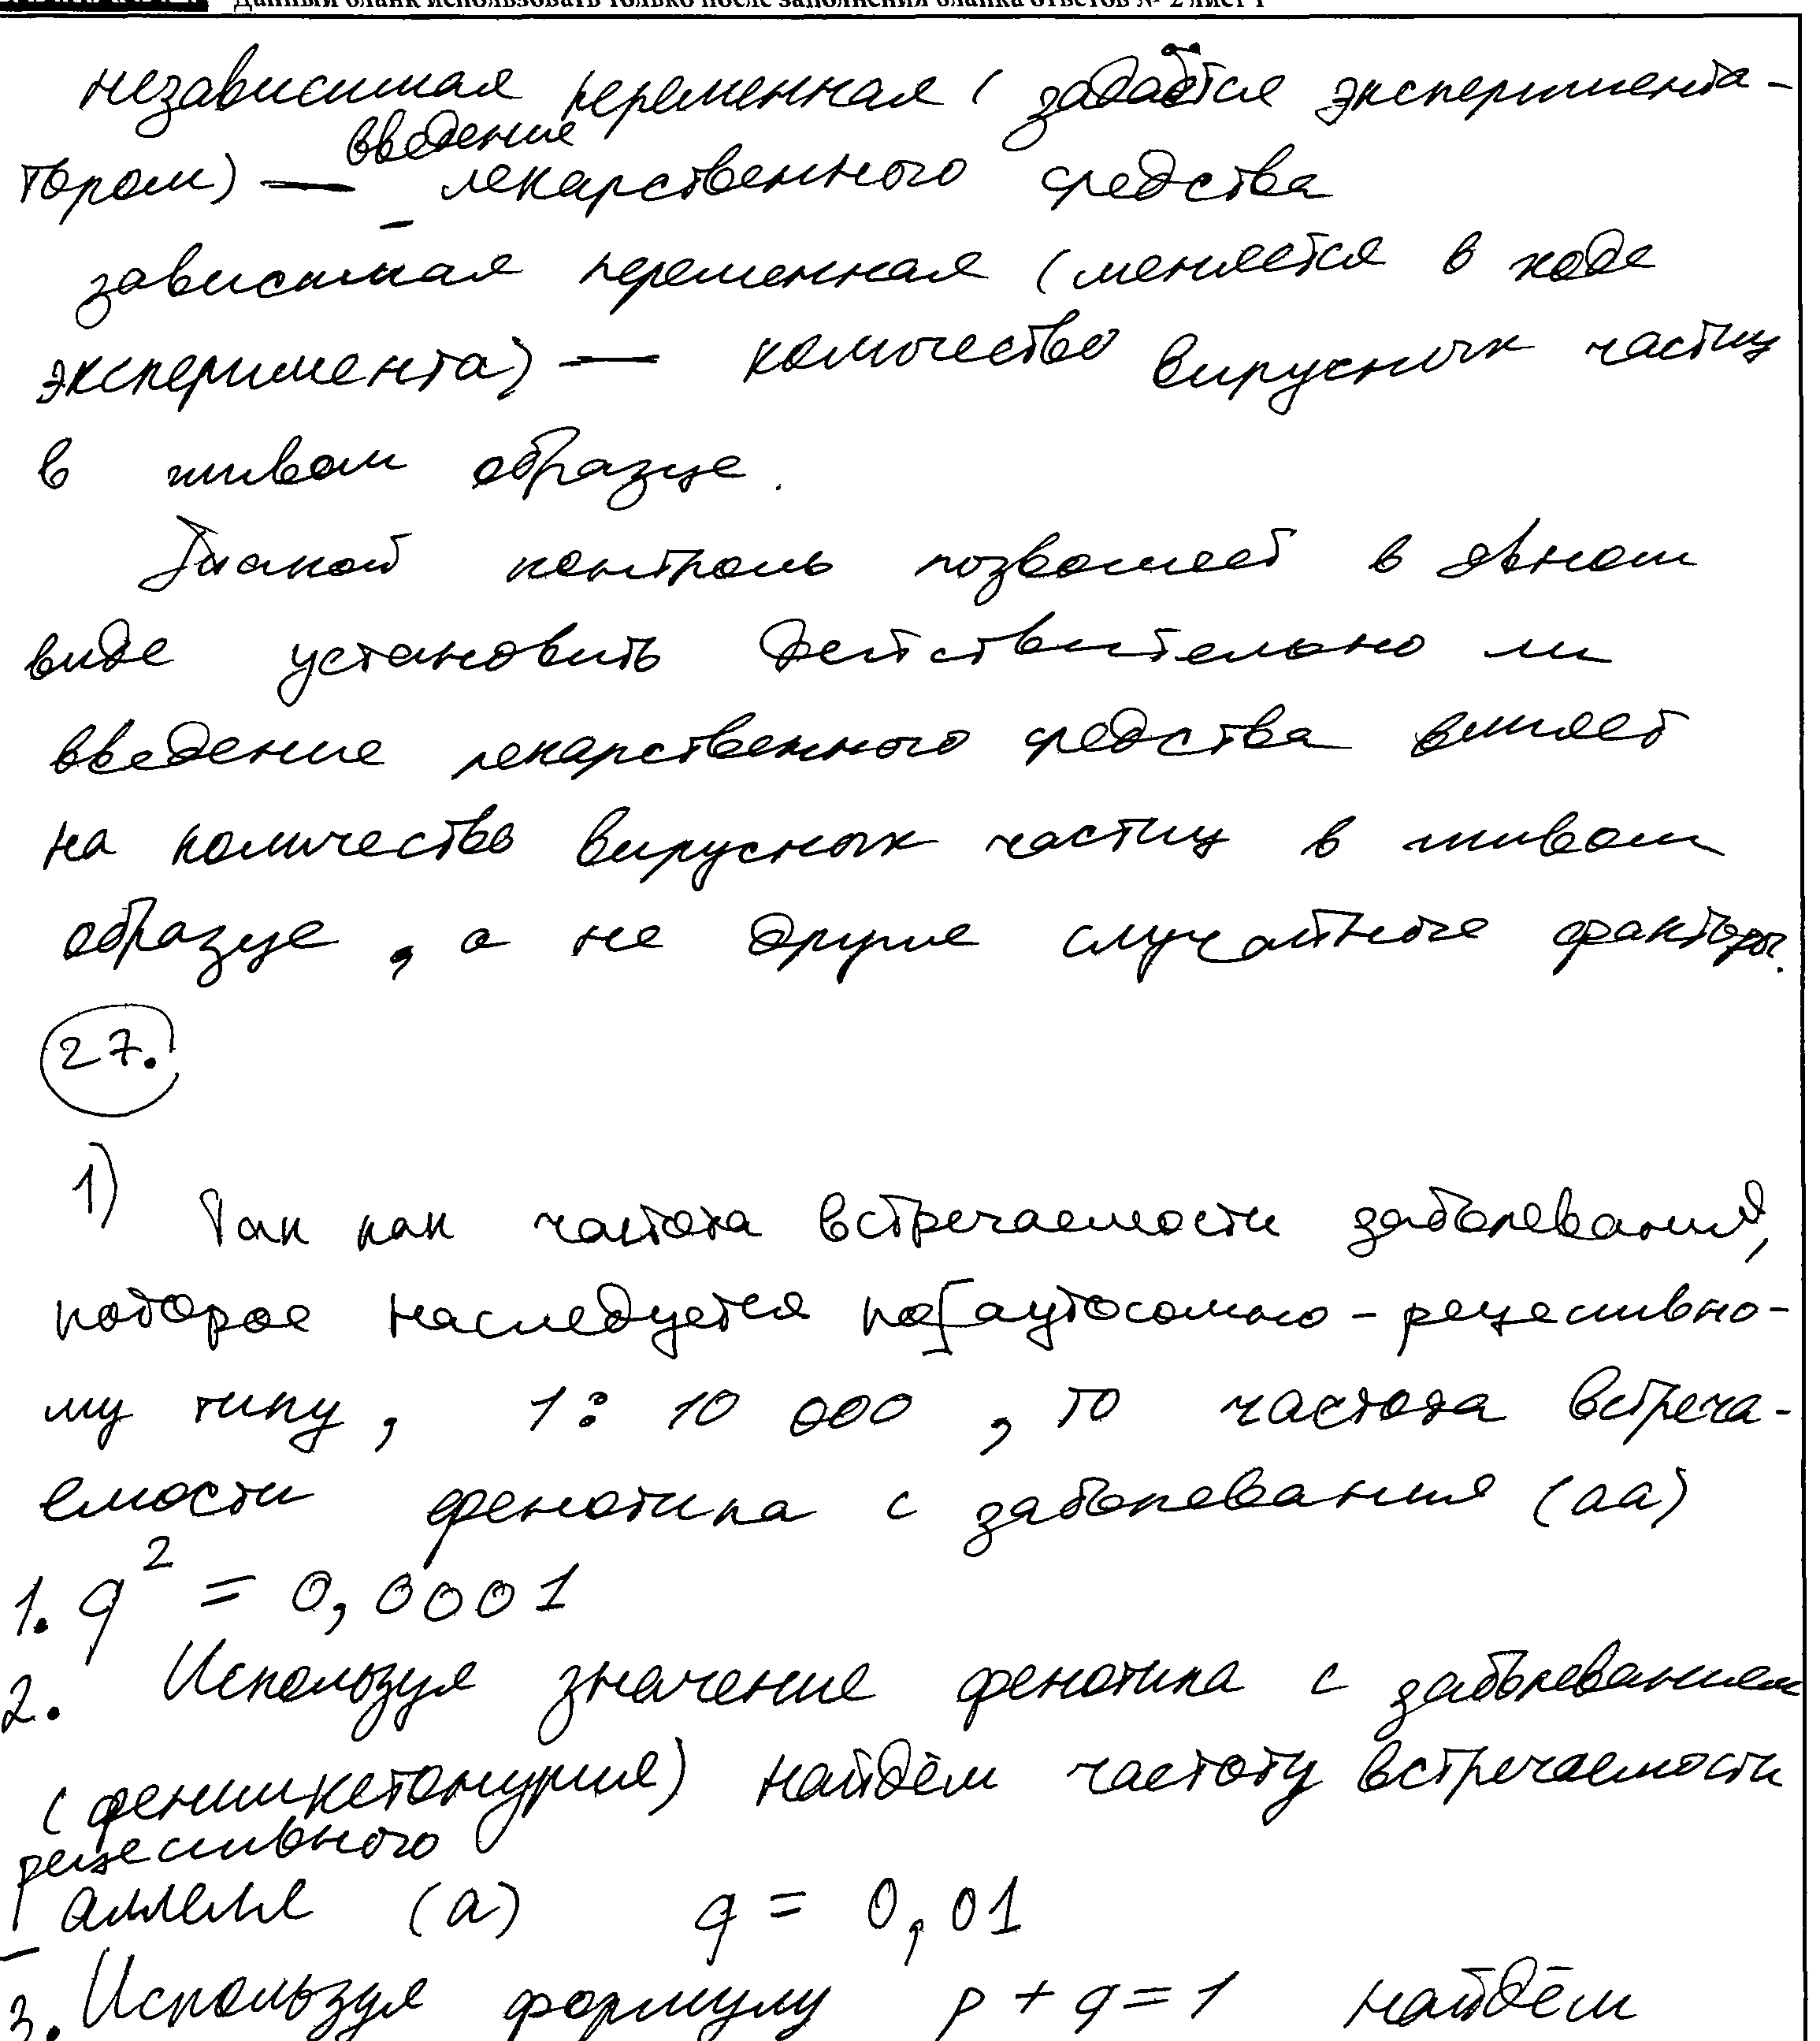 Данный бланк использовать только после заполнения бланка ответов № 2 лист 1
независимая переменная (задаётся эксперимента-
введение
тором) — лекарственного средства
зависимая переменная (меняется в ходе
эксперимента) — количество вирусных частиц
в живом образце.
Такой контроль позволяет в явном
виде установить действительно ли
введение лекарственного средства влияет
на количество вирусных частиц в живом
образце, а не другие случайные факторы.
27.
1) Так как частота встречаемости заболевания,
которое наследуется по аутосомно-рецессивно-
му типу, 1:10 000, то частота встреча-
емости фенотипа с заболевания (аа)
1. q² = 0,0001
2. Используя значение фенотипа с заболеванием
(фенилкетонурия) найдём частоту встречаемости
рецессивного
аллеля (а) q = 0,01
3. Используя формулу p + q = 1 найдём